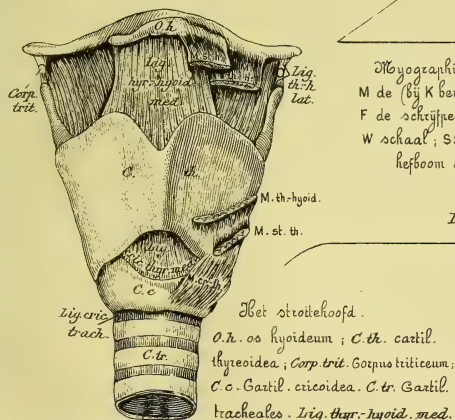 O.h.
Lig.
hyr-hyoid.
med.
Corp.
trit.
Lig.
th-h
lat.
C. th.
M. th.-hyoid.
M. st. th.
Lig
cr. thyr. med.
M. cr.-th.
C.c
Lig. cric.
trach.
C.tr.
Myographi
M de (bij K be
F de schrijfpe
W schaal ; S
hefboom
Het strottehoofd.
O.h. os hyoideum ; C.th. cartil.
thyreoidea ; Corp. trit. Corpus triticeum;
C.c. Cartil. cricoidea. C.tr. Cartil.
tracheales. Lig. thyr.-hyoid. med.